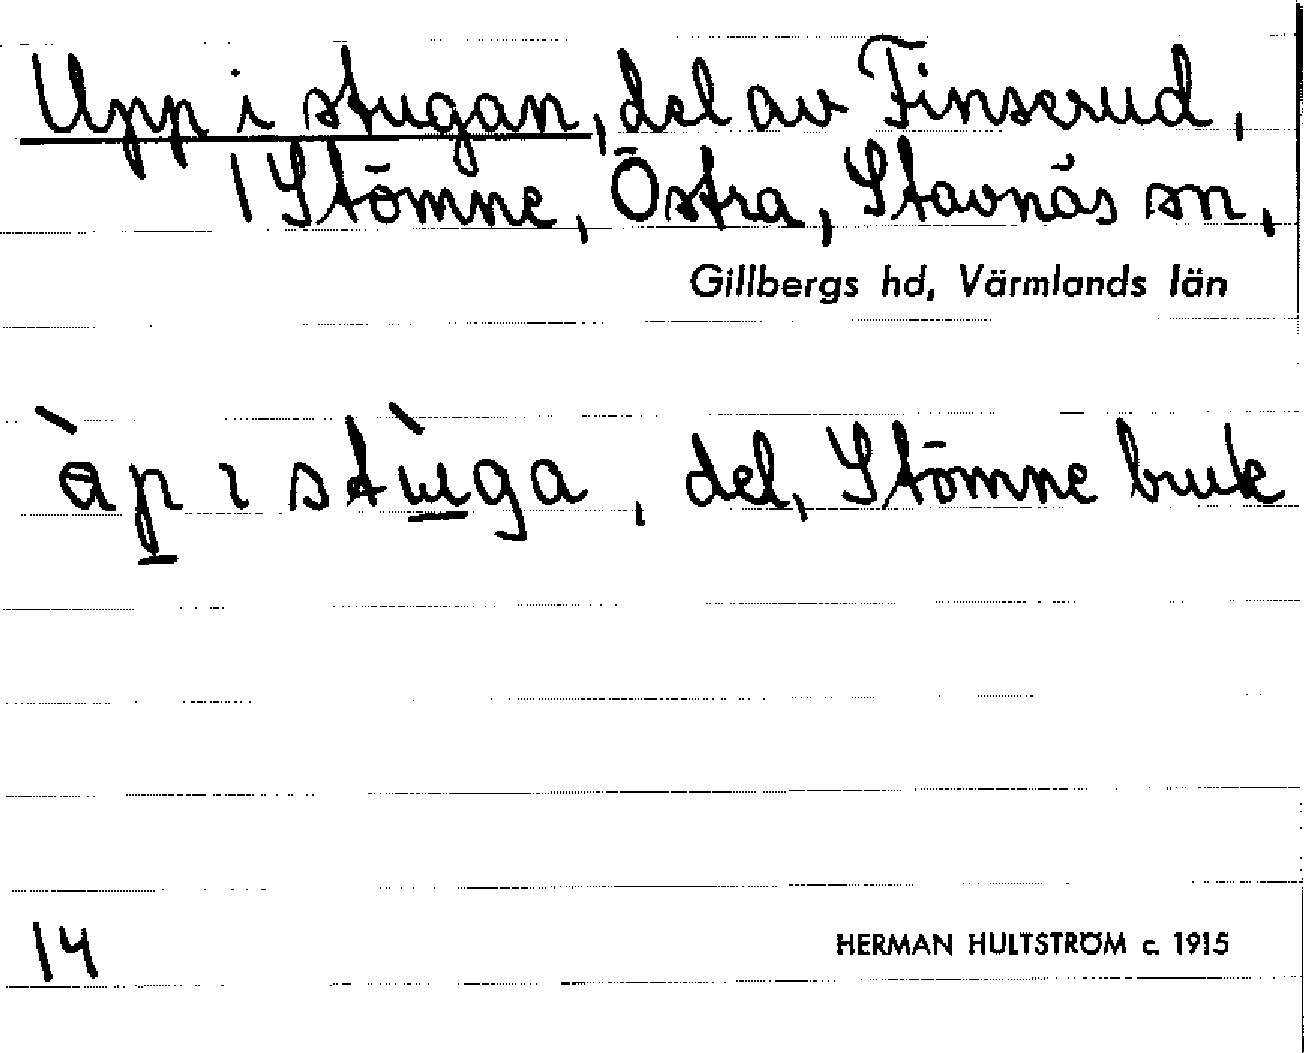 Upp i stugan, del av Finserud,
1 Stömne, Östra, Stavnäs sn,
Gillbergs hd, Värmlands län
àp ɿ stùga, del, Stömne bruk
14
HERMAN HULTSTRÖM c. 1915